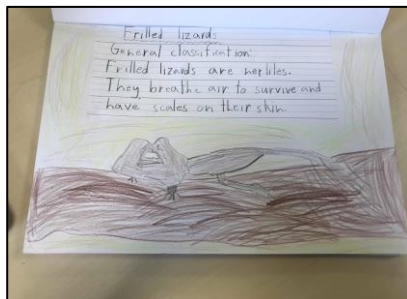 Frilled lizards
General classification:
Frilled lizards are herliles.
They breathe air to survive and
have scales on their skin